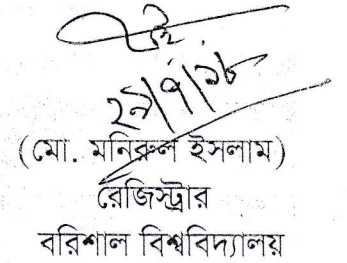 ২৯/৭/১৮
(মো. মনিরুল ইসলাম)
রেজিস্ট্রার
বরিশাল বিশ্ববিদ্যালয়